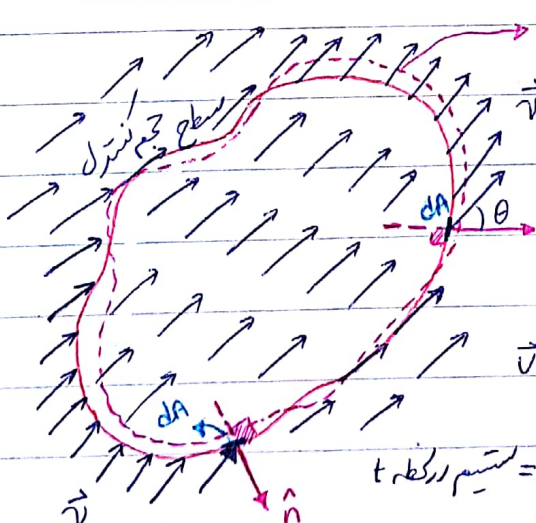 سطح حجم کنترل
v⃗
dA
θ
v⃗
dA
= سیستم در لحظه t
v⃗
n̂